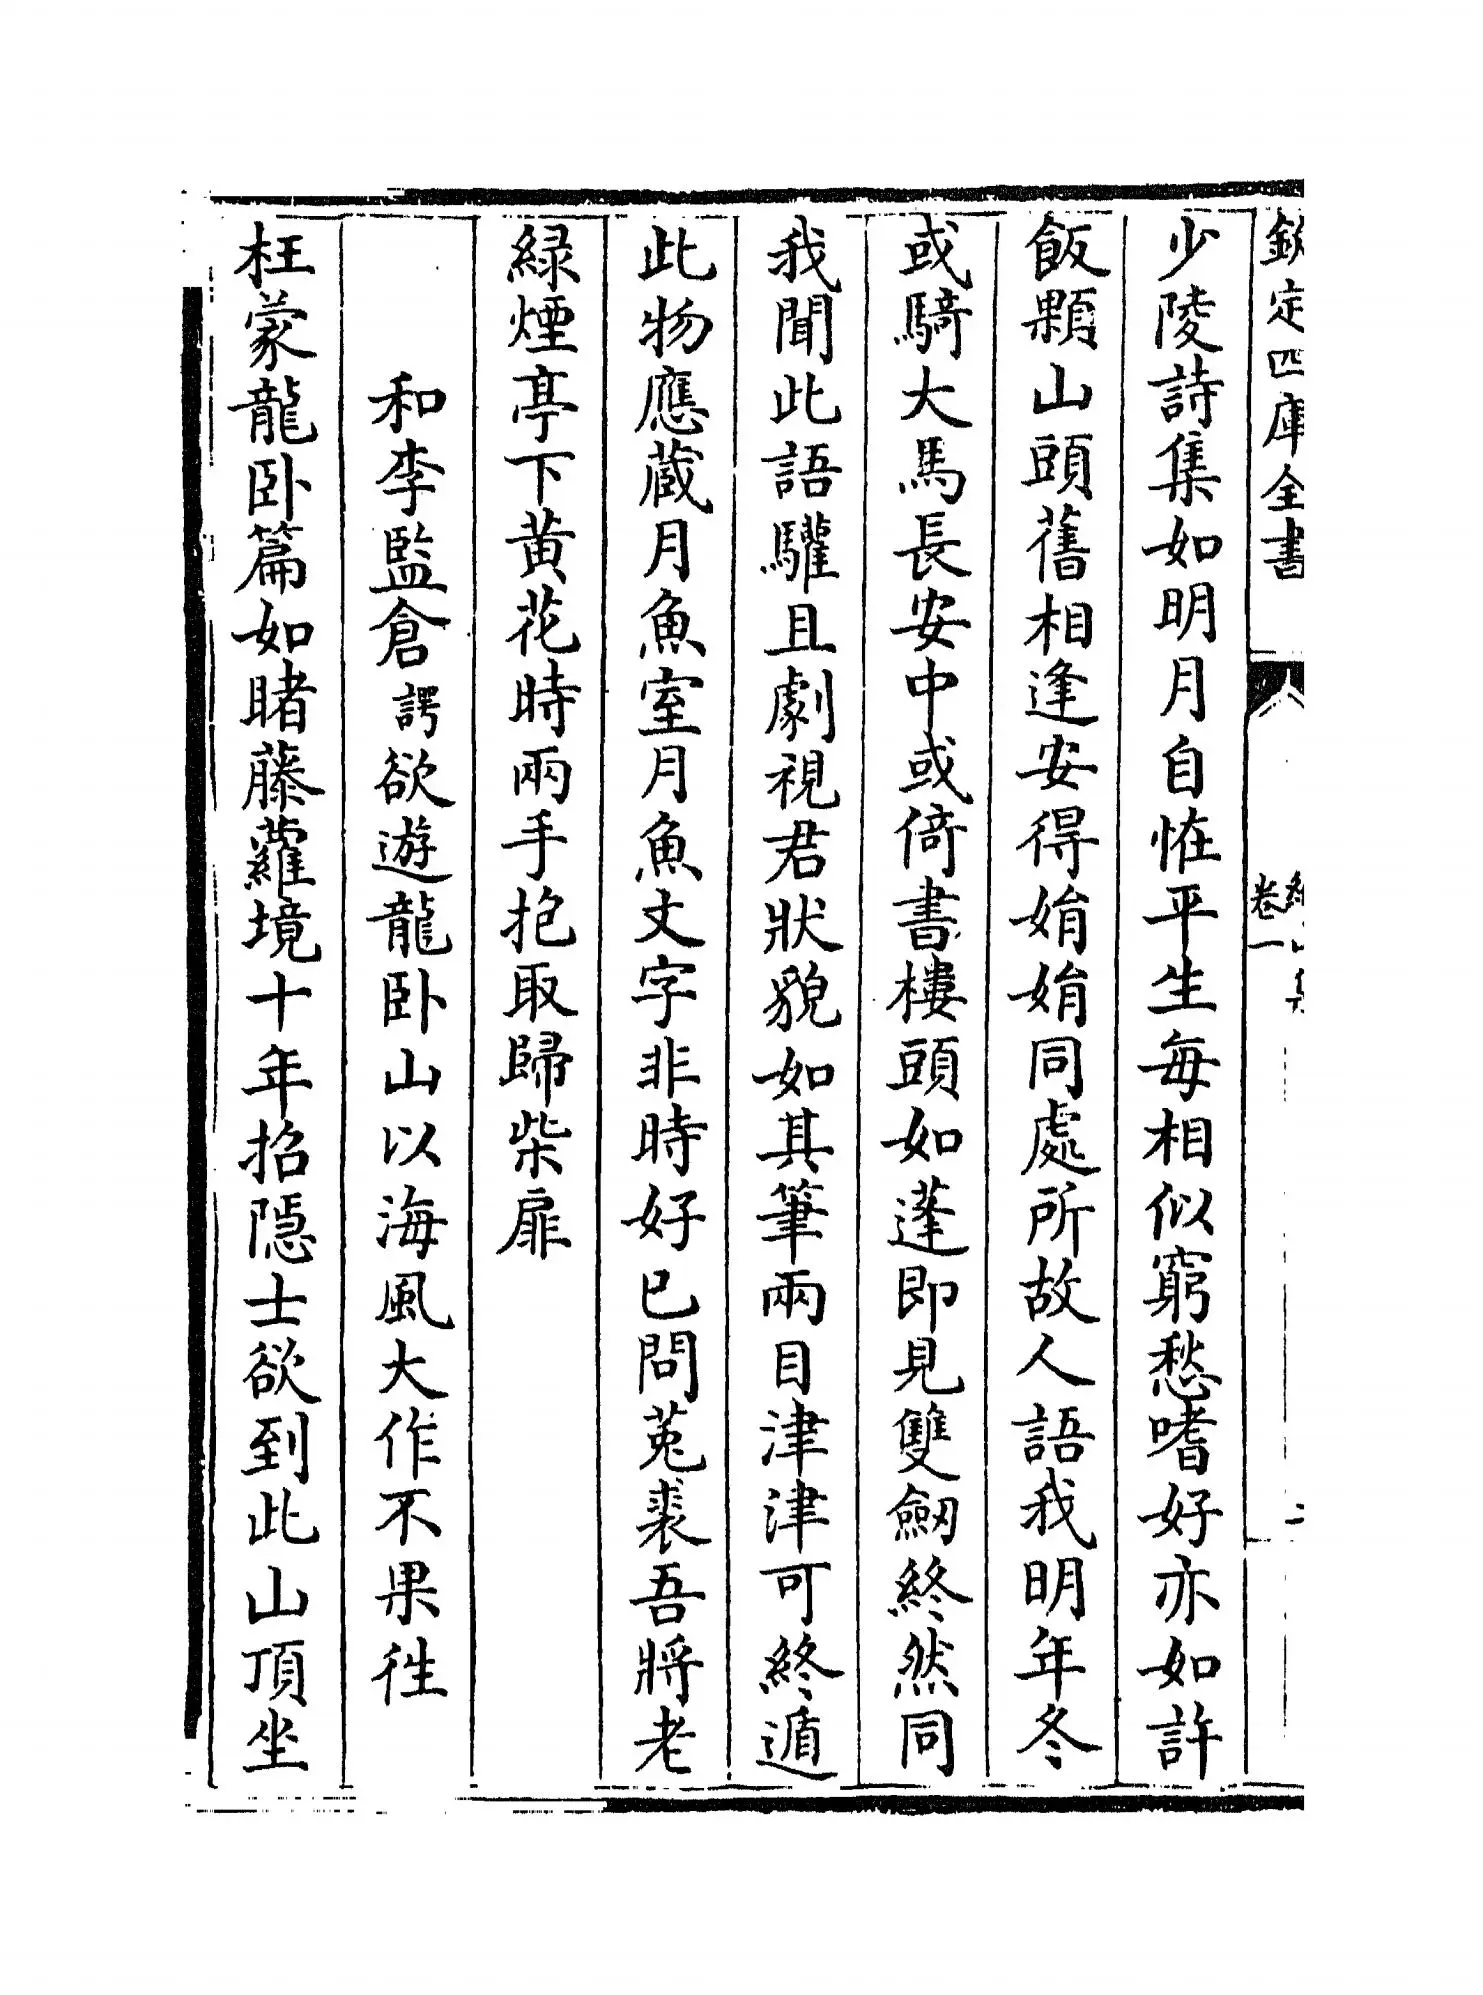 欽定四庫全書
卷一
少陵詩集如明月自恠平生每相似窮愁嗜好亦如許
飯顆山頭舊相逢安得娟娟同處所故人語我明年冬
或騎大馬長安中或倚書樓頭如蓬即見雙劒終然同
我聞此語驩且劇視君狀貌如其筆兩目津津可終遁
此物應蔵月魚室月魚文字非時好已問莵裘吾將老
緑煙亭下黄花時兩手抱取歸柴扉
和李監倉諤欲遊龍卧山以海風大作不果徃
枉蒙龍卧篇如睹藤蘿境十年招隠士欲到此山頂坐